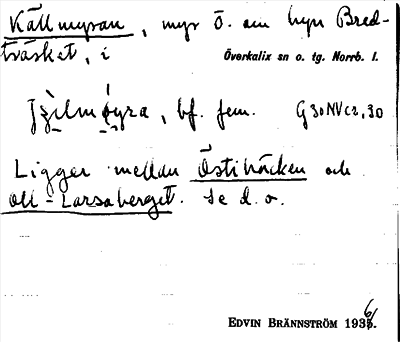 Källmyran, myr ö. om byn Bred-
träsket, i Överkalix sn o. tg. Norrb. l.
bf. fem. G30NVc2,30
Ligger mellan Östibäcken och
Oll-Larsaberget. Se d. o.
EDVIN BRÄNNSTRÖM 1936.